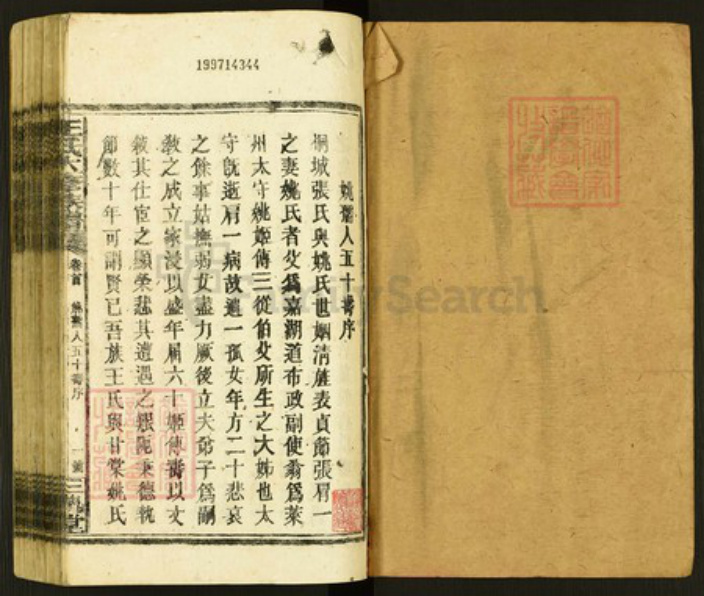 199714344
姚孺人五十壽序
桐城張氏與姚氏世姻清旌表貞節張眉一
之妻姚氏者父爲嘉湖道布政副使翁爲萊
州太守姚姬傳三從伯父所生之大姊也太
守旣逝眉一病故遺一孤女年方二十悲哀
之餘事姑撫弱女盡力厥後立夫弟子爲嗣
敎之成立家浸以盛年屆六十姬傳壽以文
敘其仕宦之顯榮悲其遭遇之艱阨秉德執
節數十年可謂賢已吾族王氏與甘棠姚氏
王氏六修族譜
卷首
姚孺人五十壽序
一
三槐堂
FamilySearch